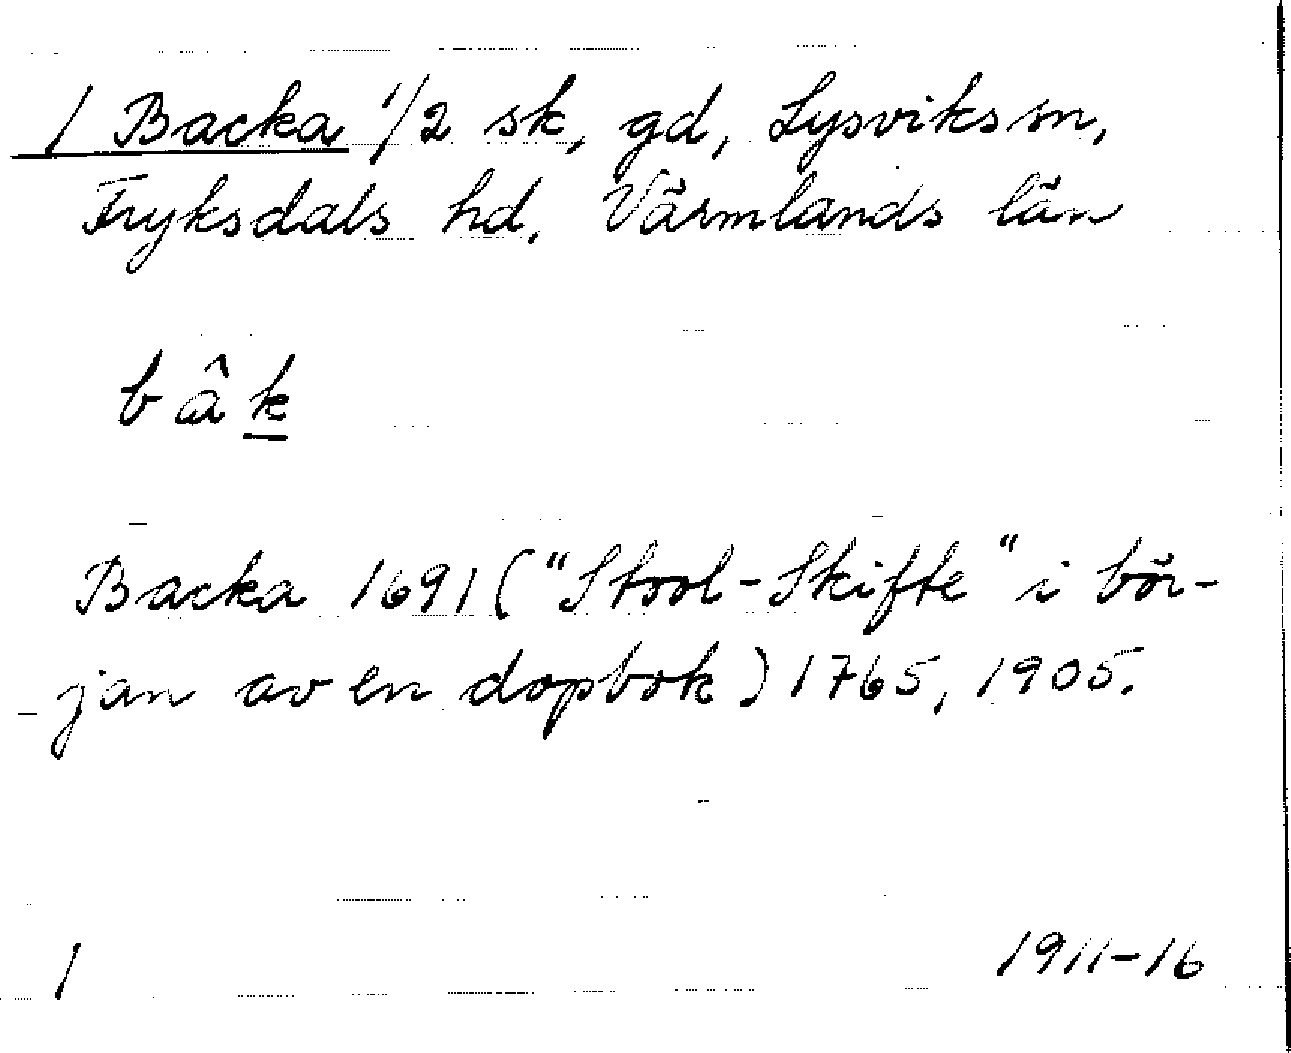 1 Backa 1/2 sk, gd, Lysviks sn,
Fryksdals hd, Värmlands län
b â k
Backa 1691 ("Stool-Skifte" i bör-
jan av en dopbok) 1765, 1905.
1 1911-16